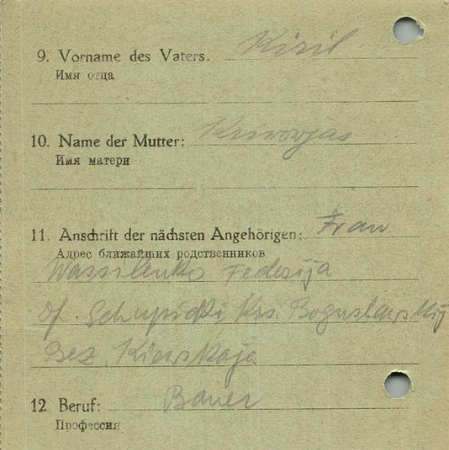 9. Vorname des Vaters. Kiril
Имя отца
10. Name der Mutter: Krivovjas
Имя матери
11. Anschrift der nächsten Angehörigen: Frau
Адрес ближайших родственников
Wassilenko Fedosija
Df. Schupidki, Krs. Boguslawskij
Bez. Kiewskaja
12. Beruf: Bauer
Профессия